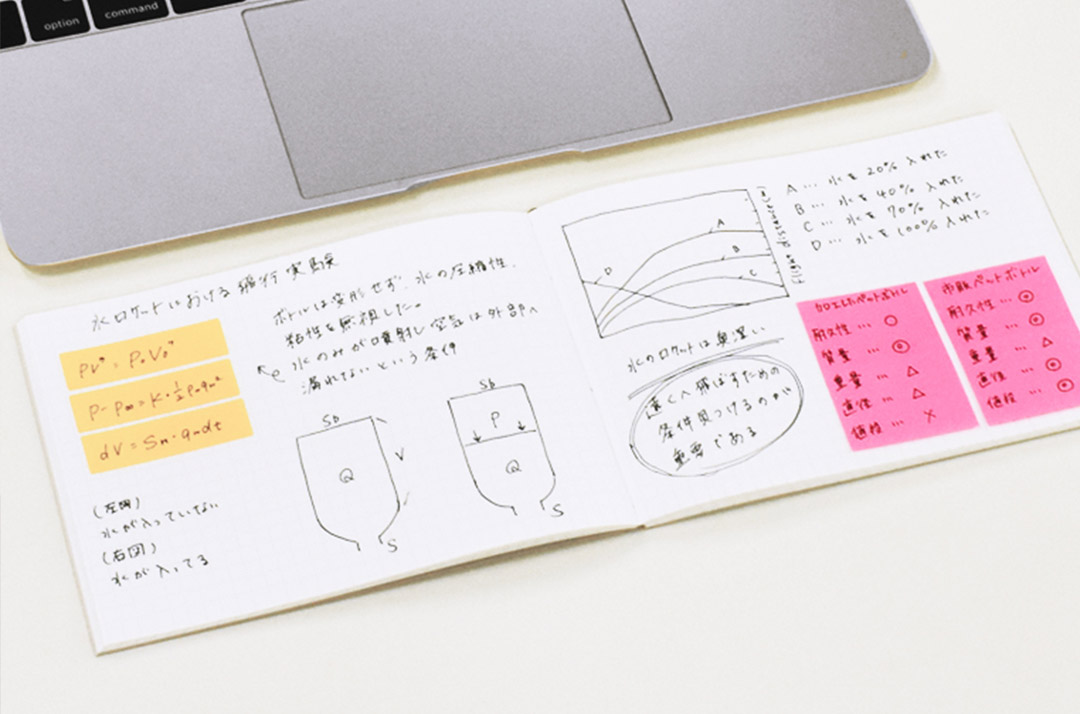 option
command
水ロケットにおける飛行実験
PVⁿ = P₀V₀ⁿ
dV = Sm・qmdt
ボトルは変形せず、水の圧縮性、
粘性を無視した。
水のみが噴射し空気は外部へ
漏れてないという条件
(左図)
水が入っていない
(右図)
水が入ってる
Sb
Q
V
S
Sb
P
Q
S
A
B
C
D
A … 水を20% 入れた
B … 水を40% 入れた
C … 水を70% 入れた
D … 水を100% 入れた
水のロケットは奥深い
遠くへ飛ばすための
条件見つけるのが
重要である
耐久性 … ○
質量 … ◎
重量 … △
直径 … △
値段 … ×
市販ペットボトル
耐久性 … ◎
質量 … ◎
重量 … △
直径 … ◎
値段 … ◎